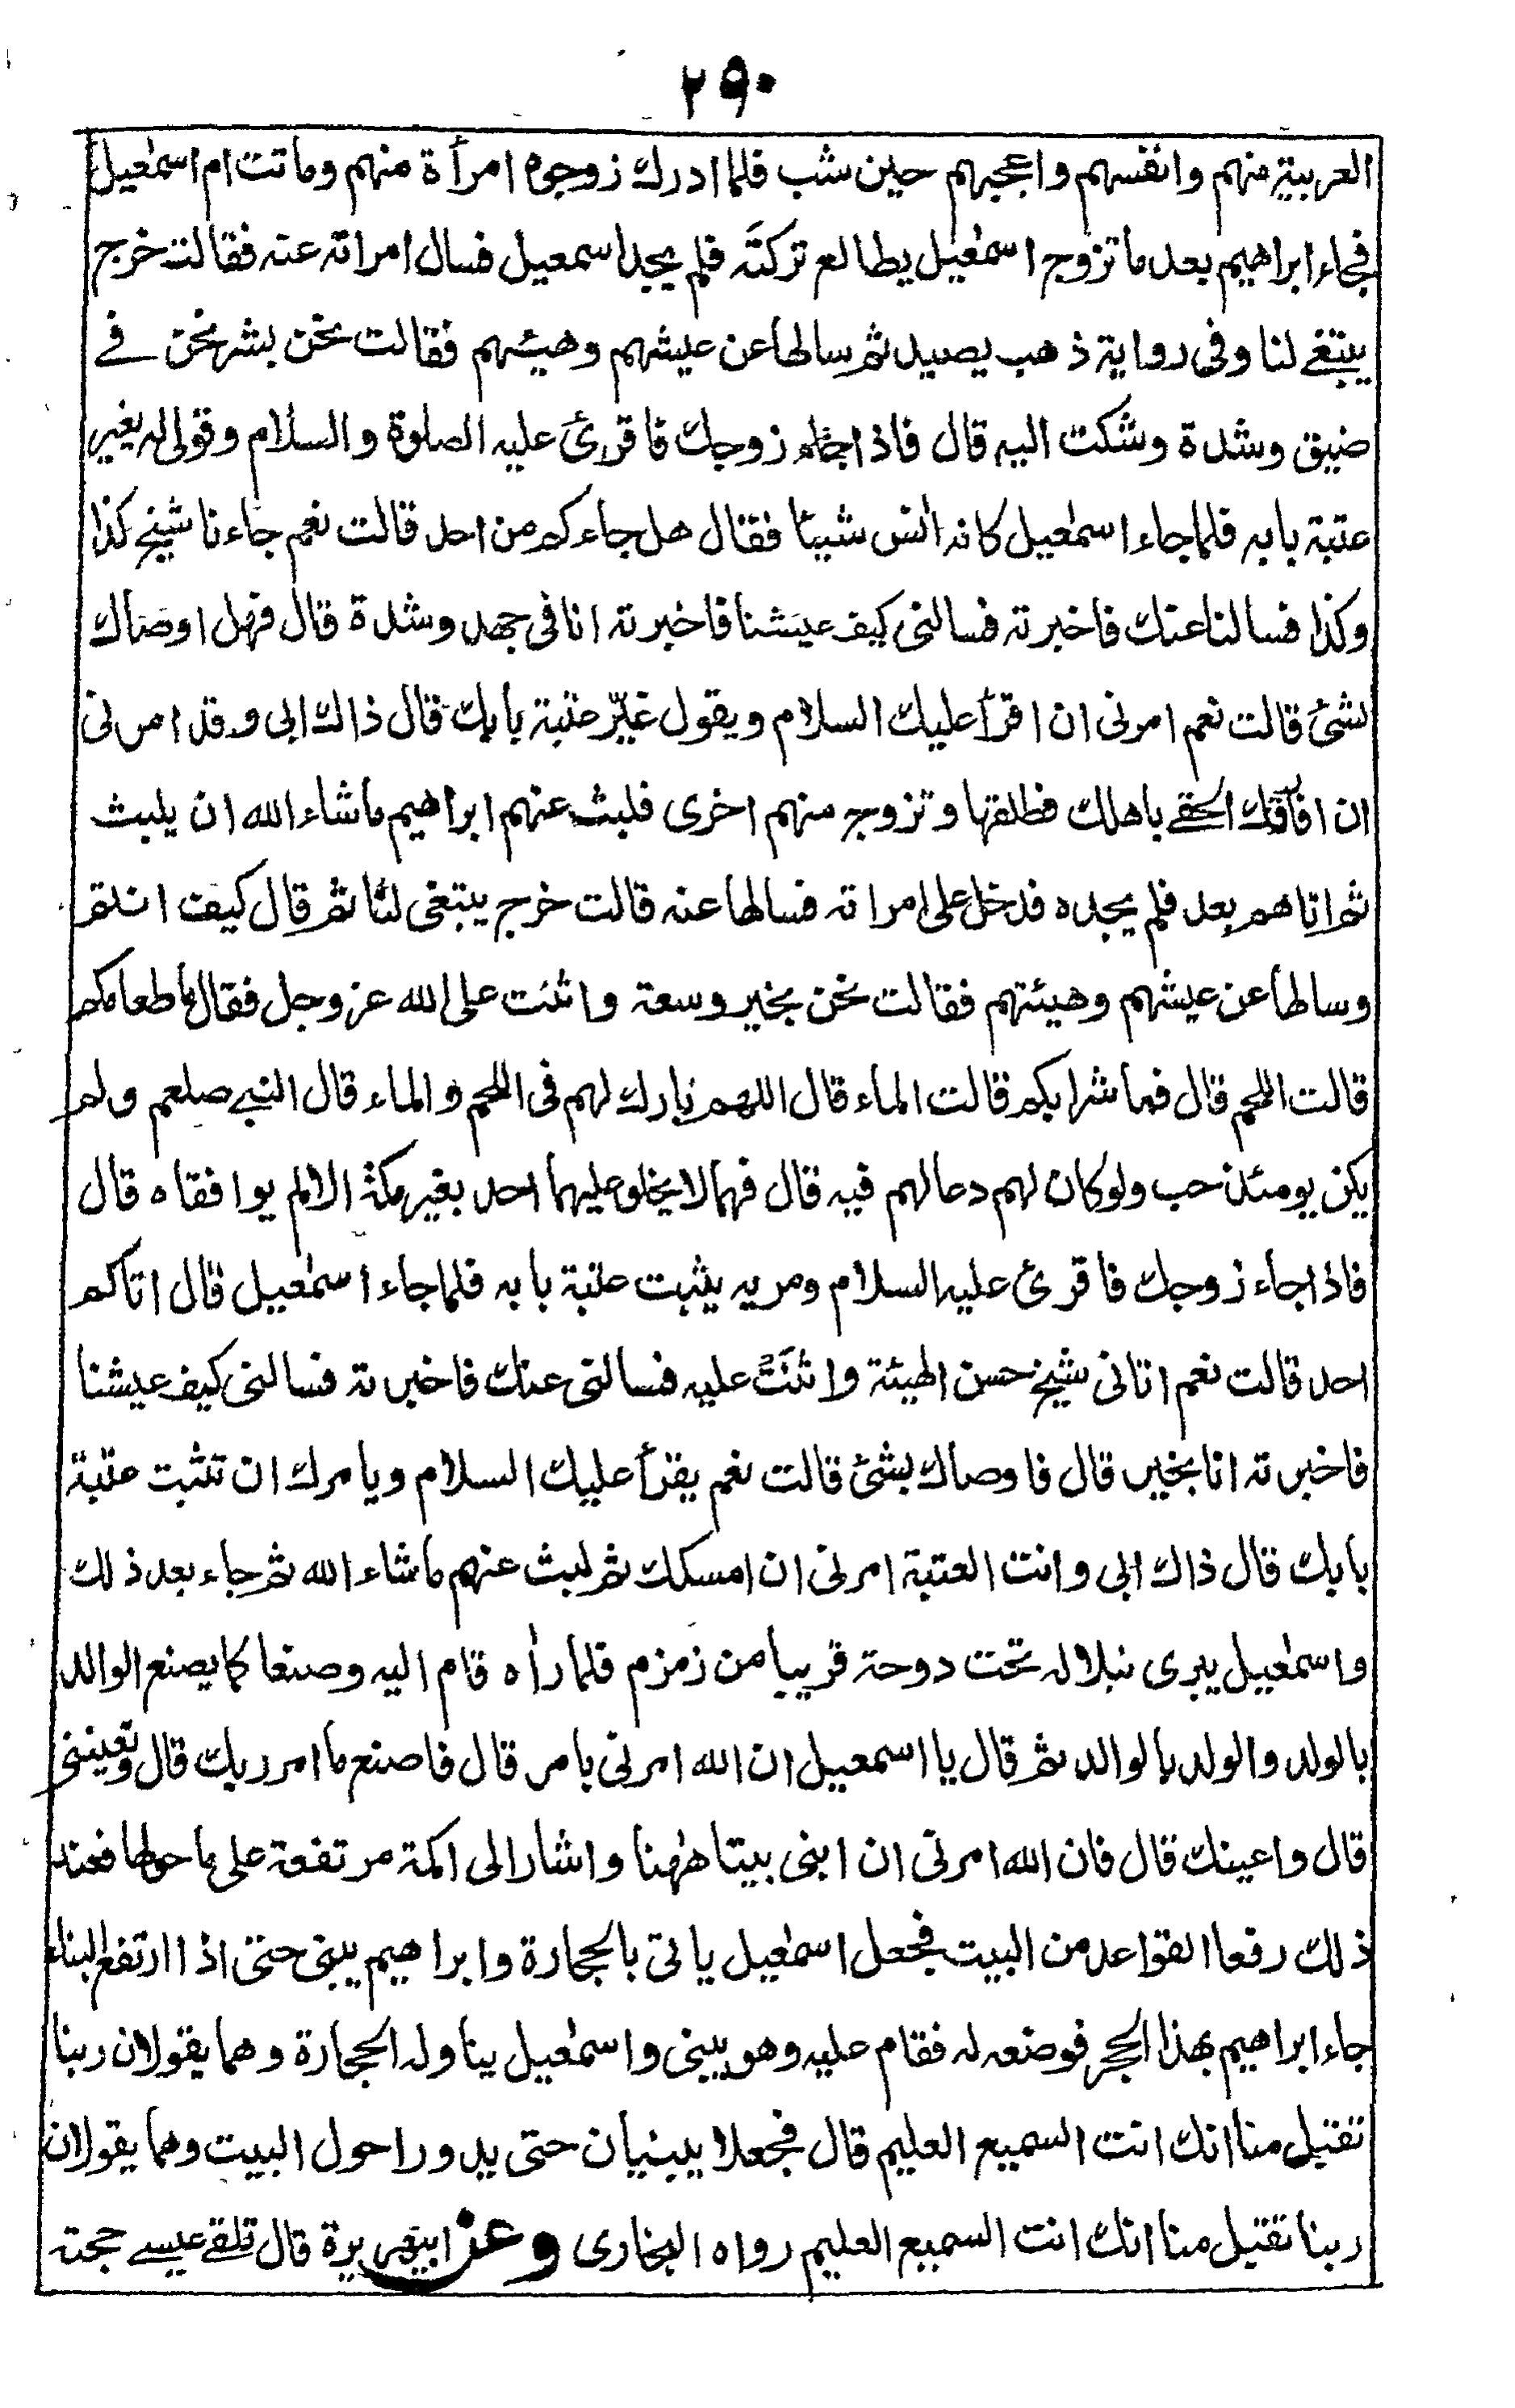 ٢٩٠
العربية منهم وانفسهم واعجبهم حين شب فلما ادرك زوجوه امرأة منهم وماتت ام اسمٰعيل
فجاء ابراهيم بعد ما تزوج اسمٰعيل يطالع تركته فلم يجد اسمعيل فسال امراته عنه فقالت خرج
يبتغي لنا وفي رواية ذهب يصيد ثم سالها عن عيشهم وهيئهم فقالت نحن بشر نحن في
ضيق وشدة وشكت اليه قال فاذا جاء زوجك فاقرئ عليه الصلوة والسلام وقولي له يغير
عتبة بابه فلما جاء اسمٰعيل كانه انس شيئا فقال هل جاءكم من احد قالت نعم جاءنا شيخ كذا
وكذا فسالنا عنك فاخبرته فسالني كيف عيشنا فاخبرته انا في جهد وشدة قال فهل اوصاك
بشئ قالت نعم امرني ان اقرأ عليك السلام ويقول غيّر عتبة بابك قال ذاك ابي وقد امرني
ان افارقك الحقي باهلك فطلقها وتزوج منهم اخرى فلبث عنهم ابراهيم ماشاء الله ان يلبث
ثم اتاهم بعد فلم يجده فدخل على امراته فسالها عنه قالت خرج يبتغي لنا ثم قال كيف انتم
وسالها عن عيشهم وهيئتهم فقالت نحن بخير وسعة واثنت على الله عز وجل فقال ما طعامكم
قالت اللحم قال فما شرابكم قالت الماء قال اللهم بارك لهم في اللحم والماء قال النبي صلعم ولم
يكن يومئذ حب ولو كان لهم دعا لهم فيه قال فهما لا يخلو عليهما احد بغير مكة الا لم يوافقاه قال
فاذا جاء زوجك فاقرئ عليه السلام ومريه يثبت عتبة بابه فلما جاء اسمٰعيل قال اتاكم
احد قالت نعم اتاني شيخ حسن الهيئة واثنت عليه فسالني عنك فاخبرته فسالني كيف عيشنا
فاخبرته انا بخير قال فاوصاك بشئ قالت نعم يقرأ عليك السلام ويامرك ان تثبت عتبة
بابك قال ذاك ابي وانت العتبة امرني ان امسكك ثم لبث عنهم ماشاء الله ثم جاء بعد ذلك
واسمٰعيل يبرى نبلا له تحت دوحة قريبا من زمزم فلما راٰه قام اليه وصنعا كما يصنع الوالد
بالولد والولد بالوالد ثم قال يا اسمعيل ان الله امرني بامر قال فاصنع ما امر ربك قال وتعينني
قال واعينك قال فان الله امرني ان ابني بيتا هٰهنا واشار الى اكمة مرتفعة على ما حولها فعند
ذلك رفعا القواعد من البيت فجعل اسمٰعيل ياتي بالحجارة وابراهيم يبني حتى اذا ارتفع البناء
جاء ابراهيم بهذا الحجر فوضعه له فقام عليه وهو يبني واسمٰعيل يناوله الحجارة وهما يقولان ربنا
تقبل منا انك انت السميع العليم قال فجعلا يبنيان حتى يدورا حول البيت وهما يقولان
ربنا تقبل منا انك انت السميع العليم رواه البخاري وعن ابي هريرة قال تلقى عيسى حجته